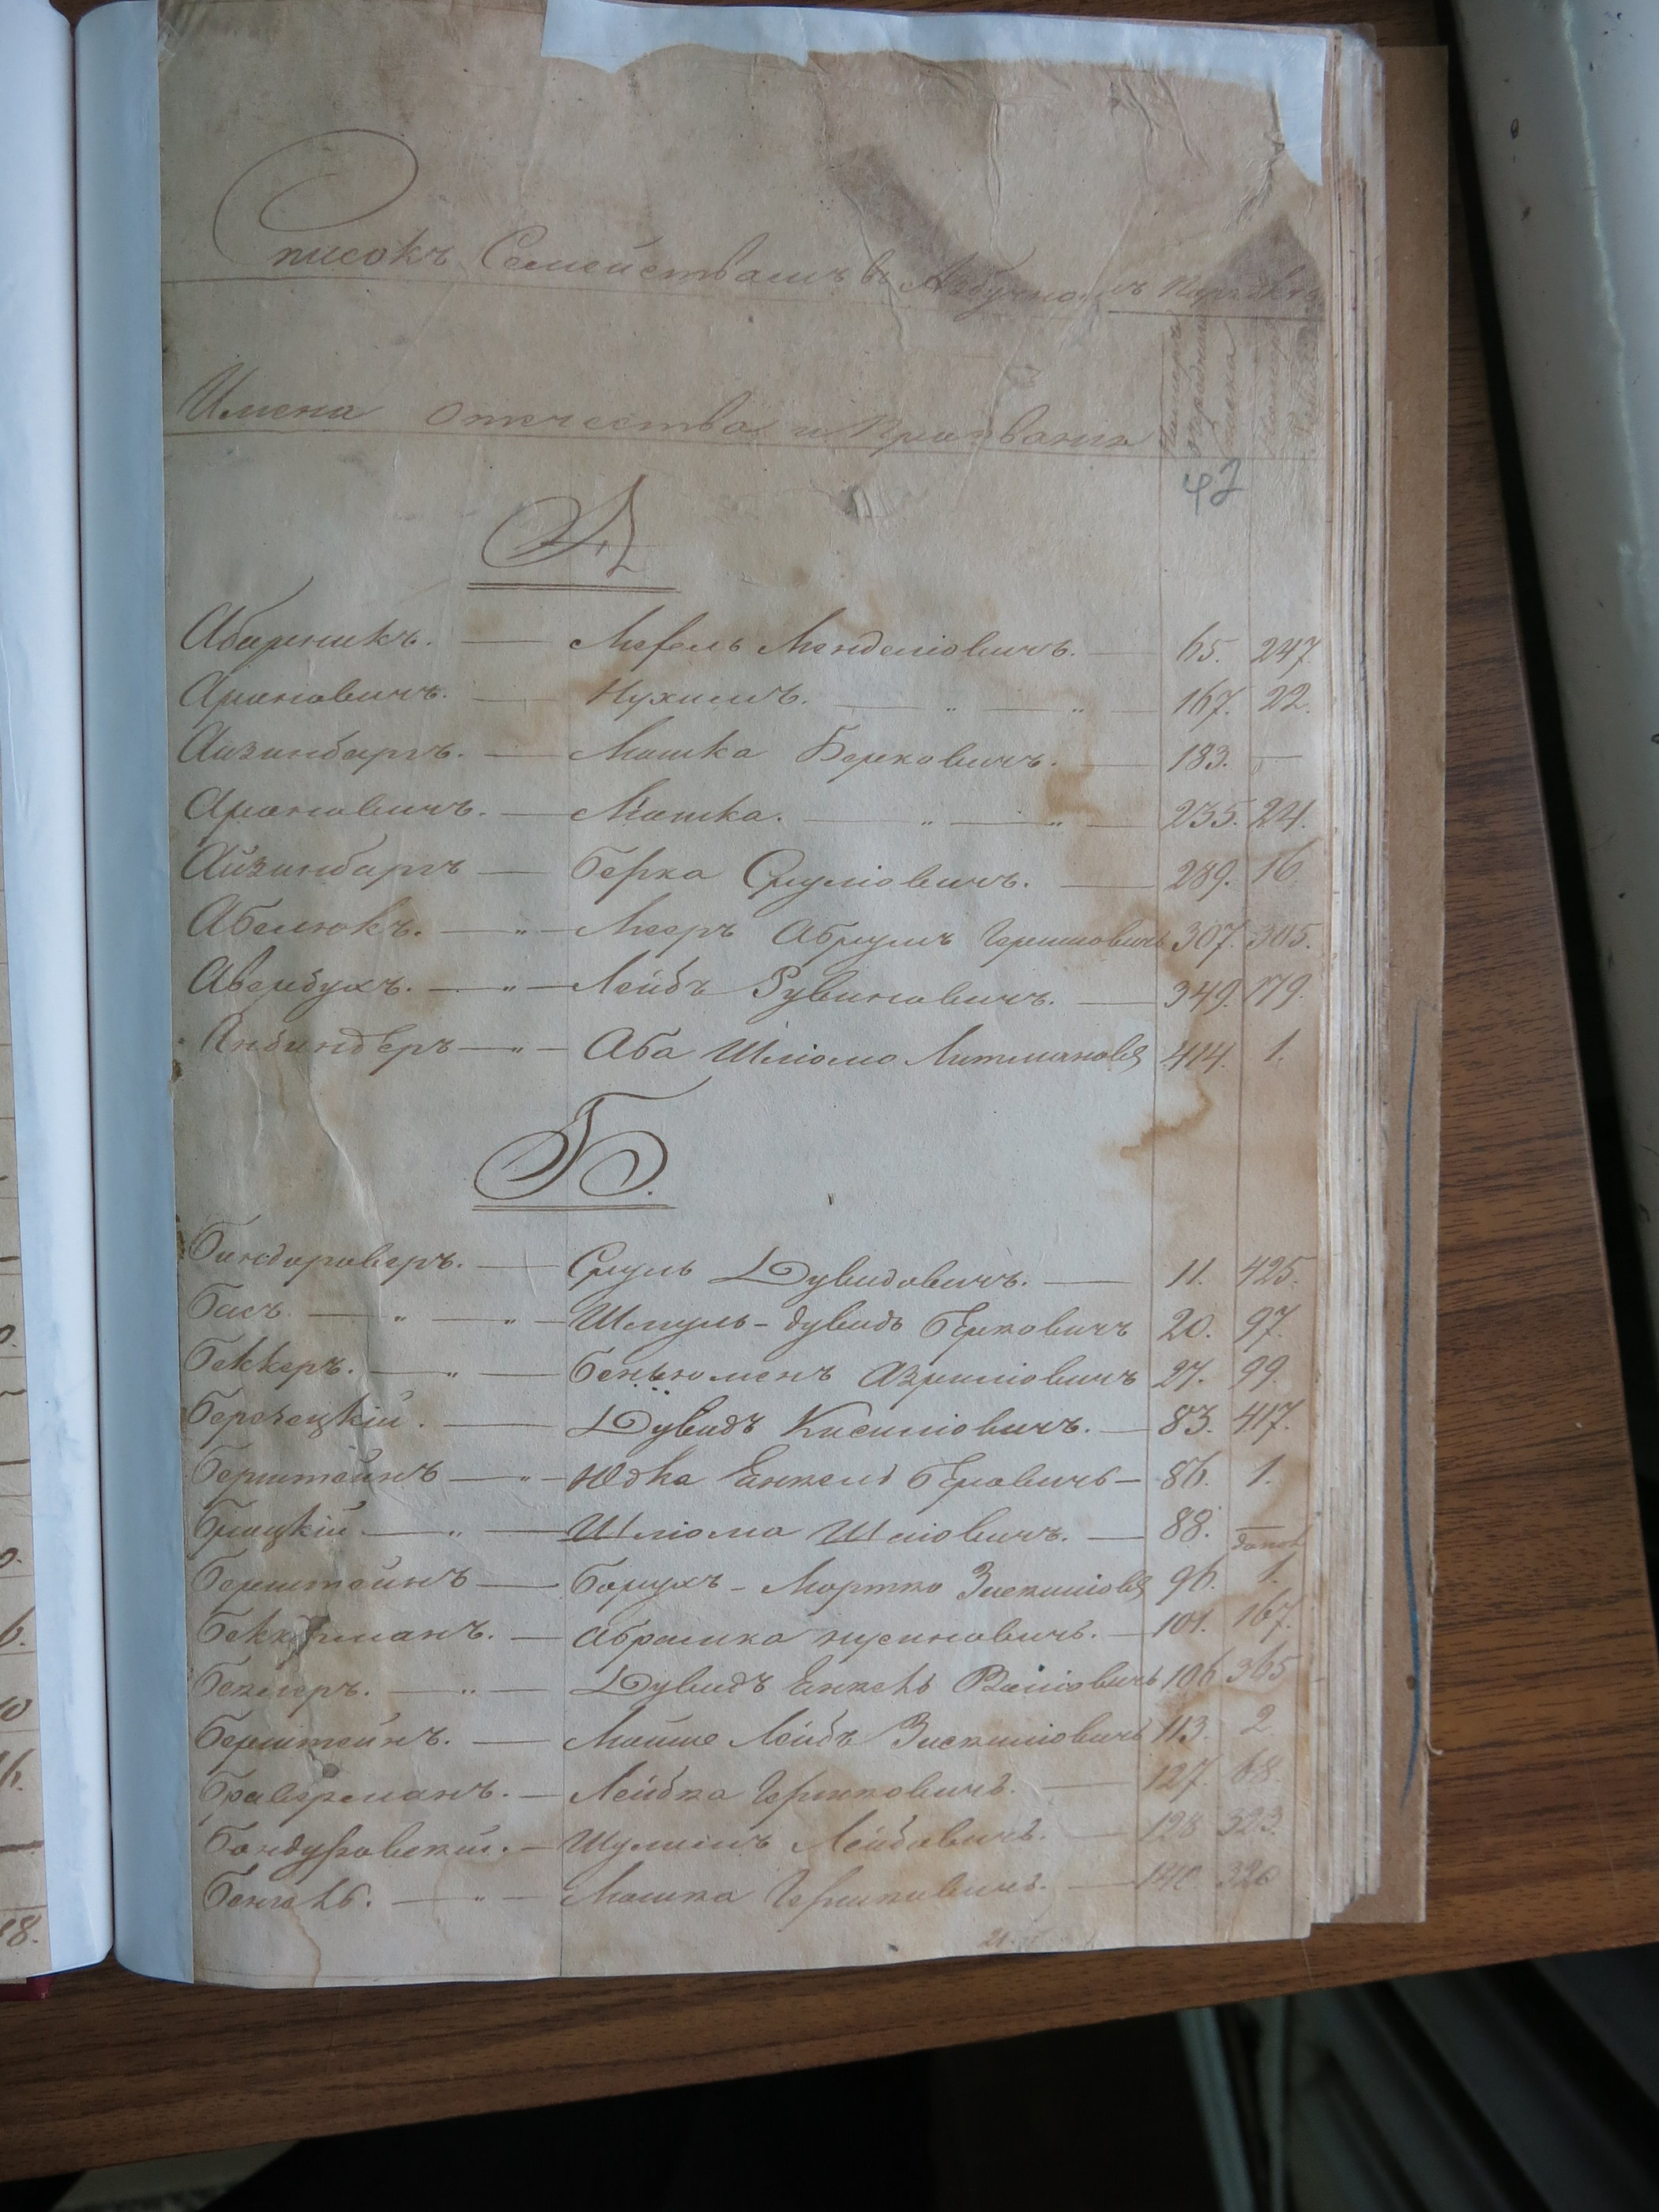 Списокъ Семействамъ въ Азбучномъ Порядкѣ
Имена Отчества и Прозвания
Нумеръ очереднаго списка
Нумеръ
42
А
Абарникъ. — Мефель Менделіовичъ. — 65. 247.
Ароновичъ. — Нухимъ. — " — " — 167. 22.
Айзинбаргъ. — Мошка Берковичъ. — 183. —
Ароновичъ. — Мошка. — " — " — 235. 224.
Айзинбаргъ — Берка Сруліовичъ. — 289. 16.
Абелюкъ. — " — Мееръ Абрумъ Гершковичъ 307. 305.
Авербухъ. — " — Лейбъ Рувиновичъ. — 349. 179.
Анбиндеръ — " — Аба Шліомо Литманов 414. 1.
Б.
Сруль Дувидовичъ. — 11. 425.
Басъ. — " — " — Шмуль-дувидъ Берковичъ 20. 97.
Беккеръ. — " — Беньюменъ Азриліовичъ 27. 99.
Дувидъ Кисиліовичъ. — 83. 417.
Берштейнъ — " — Юдка Енкель Беровичъ — 86. 1.
Брицкій — " — Шліома Шліовичъ. — 88. —
Берштейнъ — Борухъ - Мортко Зискиліов 96. 1.
Беккерманъ. — Абрамка нусиновичъ. — 101. 167.
Бекеръ. — " — Дувидъ Енкель Воліовичъ 106 365
Берштейнъ. — Мойше Лейбъ Зискиліовичъ 113. 2.
Браверманъ. — Лейбка Гершковичъ. — 127. 68.
Бондуровскій. — Шулимъ Лейбовичъ. — 128 323.
— " — Мошка Гершковичъ. — 140 326